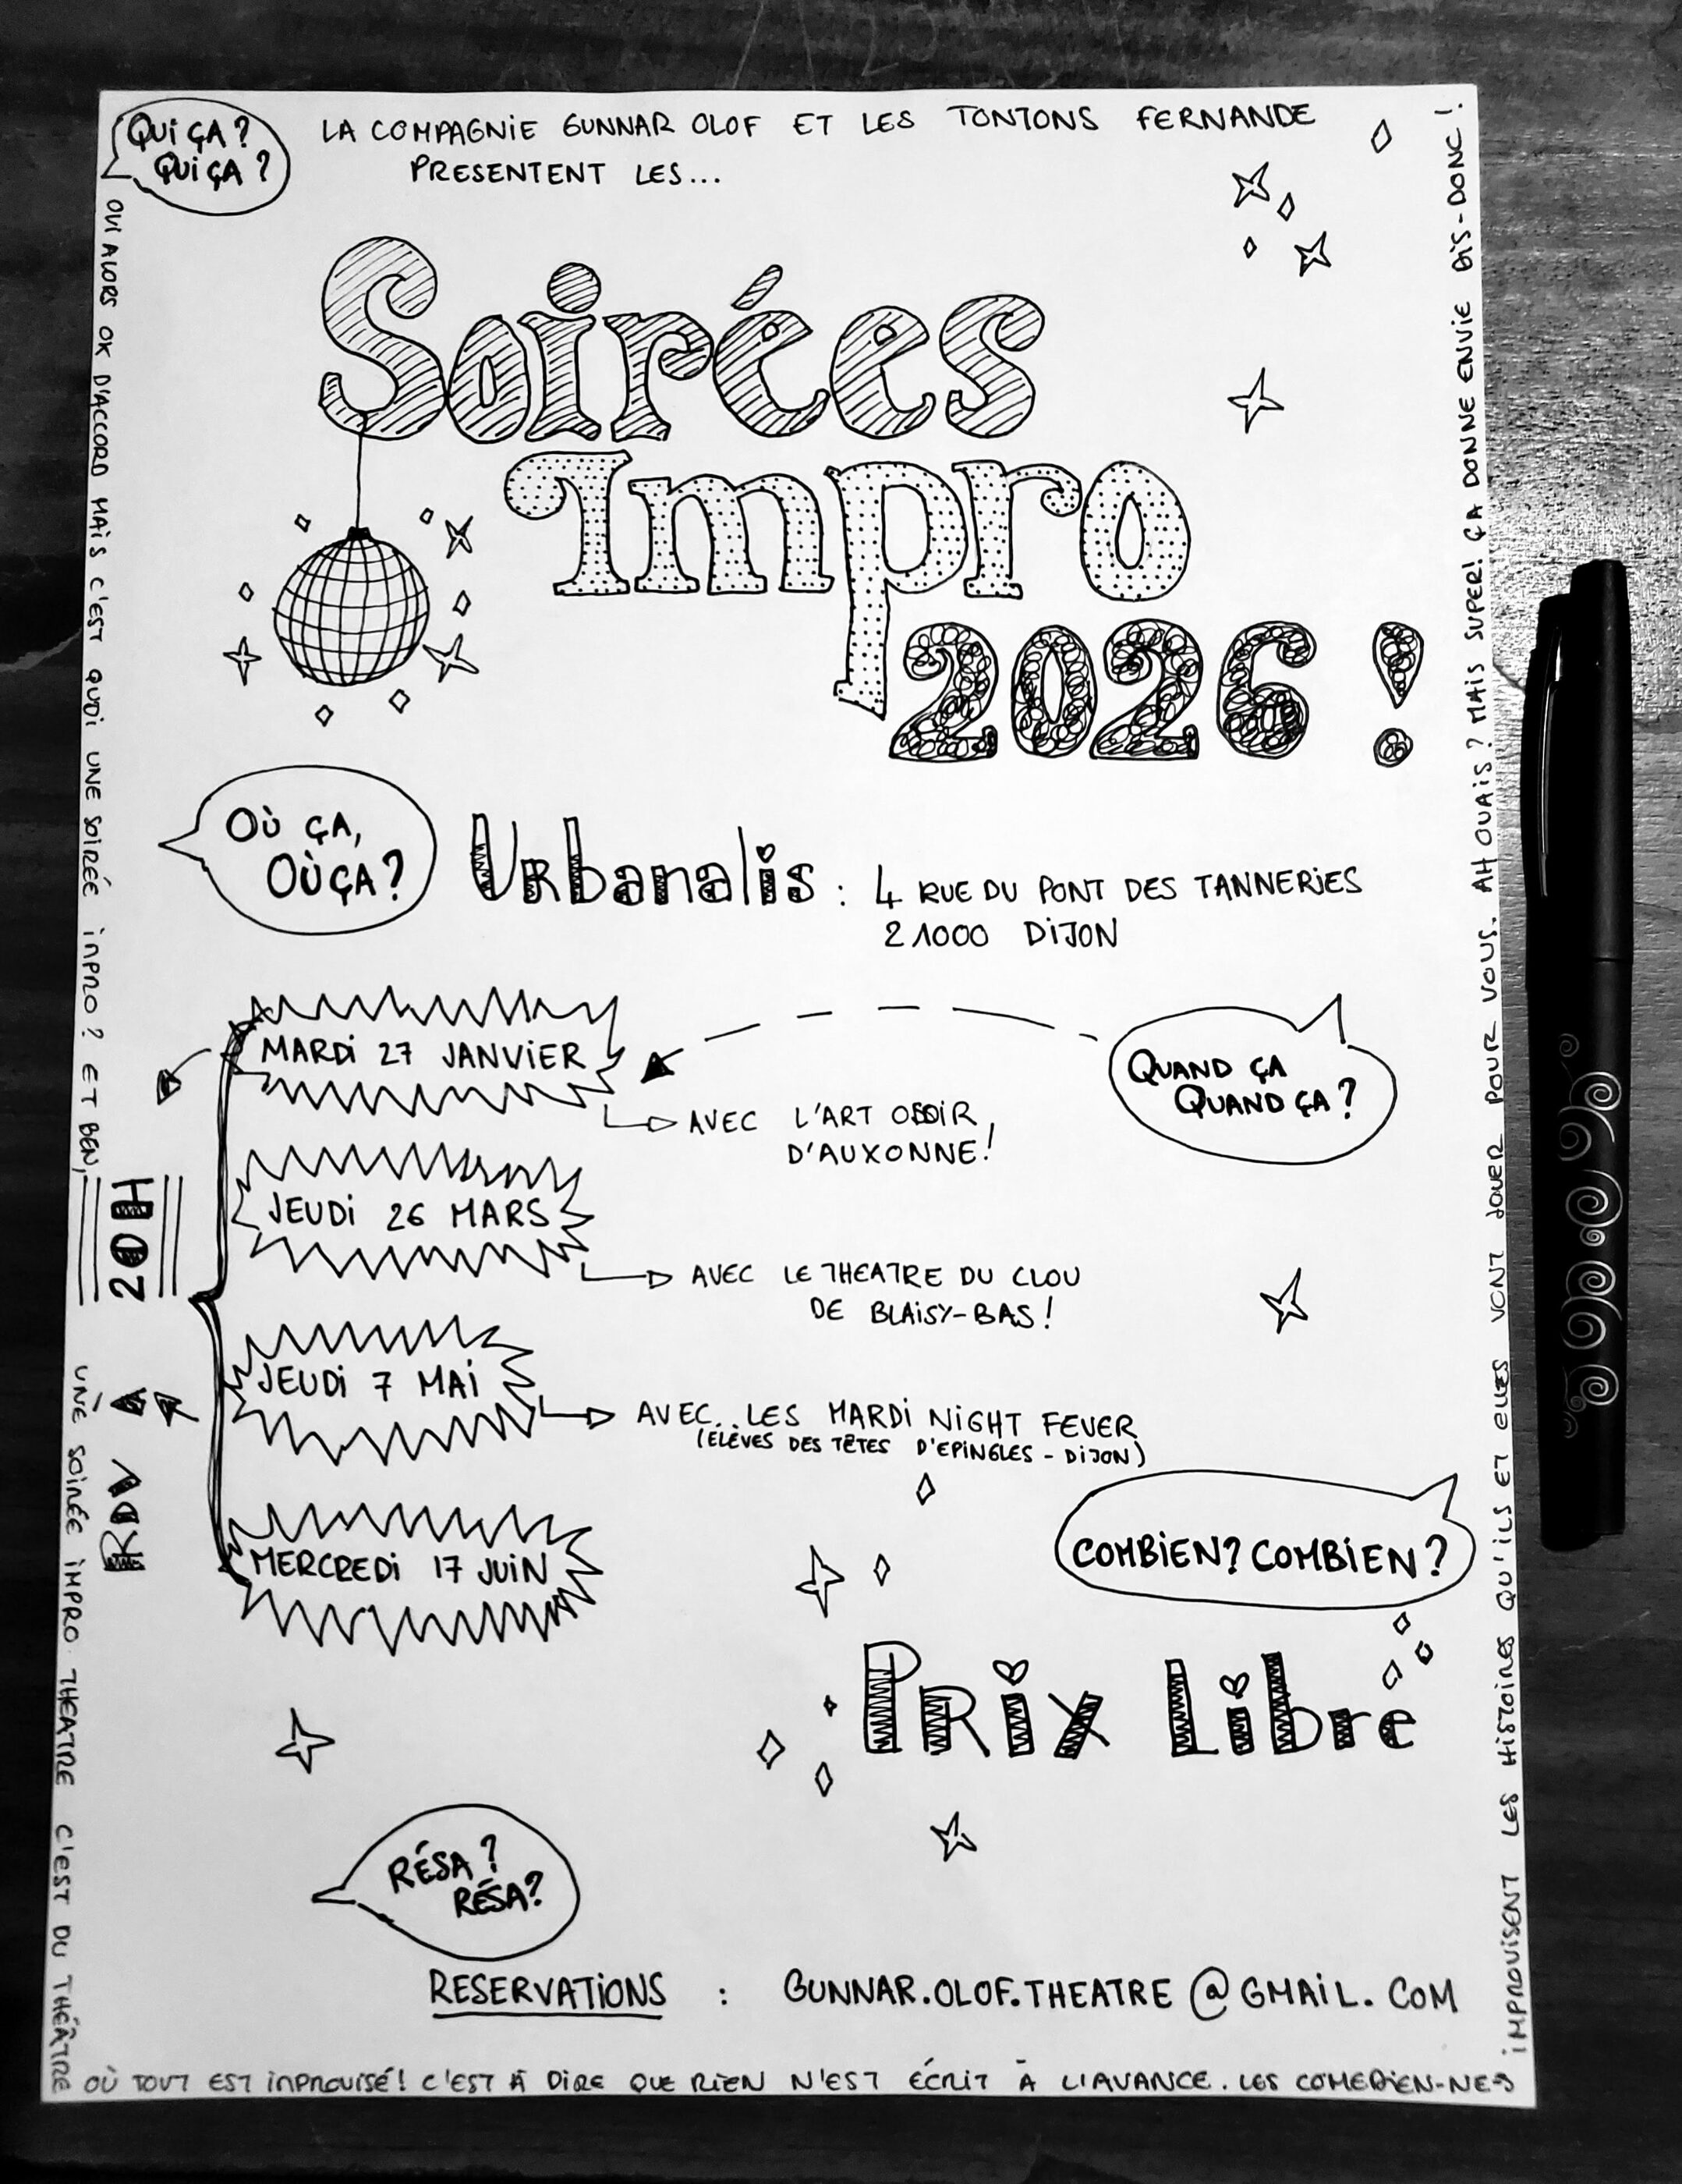 QUI ÇA?
QUI ÇA?
LA COMPAGNIE GUNNAR OLOF ET LES TONTONS FERNANDE
PRESENTENT LES...
Soirées
Impro
2026 !
OÙ ÇA,
OÙ ÇA?
Urbanalis : 4 RUE DU PONT DES TANNERIES
21000 DIJON
QUAND ÇA
QUAND ÇA?
MARDI 27 JANVIER
AVEC L'ART OSOIR,
D'AUXONNE!
JEUDI 26 MARS
AVEC LE THEATRE DU CLOU
DE BLAISY-BAS!
JEUDI 7 MAI
AVEC.. LES MARDI NIGHT FEVER
(ELÈVES DES TÊTES D'EPINGLES - DIJON)
MERCREDI 17 JUIN
RDV À 20H
COMBIEN? COMBIEN?
PRIX LIBRE
RÉSA?
RÉSA?
RESERVATIONS : GUNNAR.OLOF.THEATRE@GMAIL.COM
OUI ALORS OK D'ACCORD MAIS C'EST QUOI UNE SOIRÉE INPRO? ET BEN, UNE SOIRÉE IMPRO THEATRE C'EST DU THÉÂTRE
OÙ TOUT EST INPROVISÉ! C'EST À DIRE QUE RIEN N'EST ÉCRIT À L'AVANCE. LES COMEDIEN-NES
IMPROVISENT LES HISTOIRES QU'ILS ET ELLES VONT JOUER POUR VOUS. AH OUAIS? MAIS SUPER! ÇA DONNE ENVIE DIS-DONC!